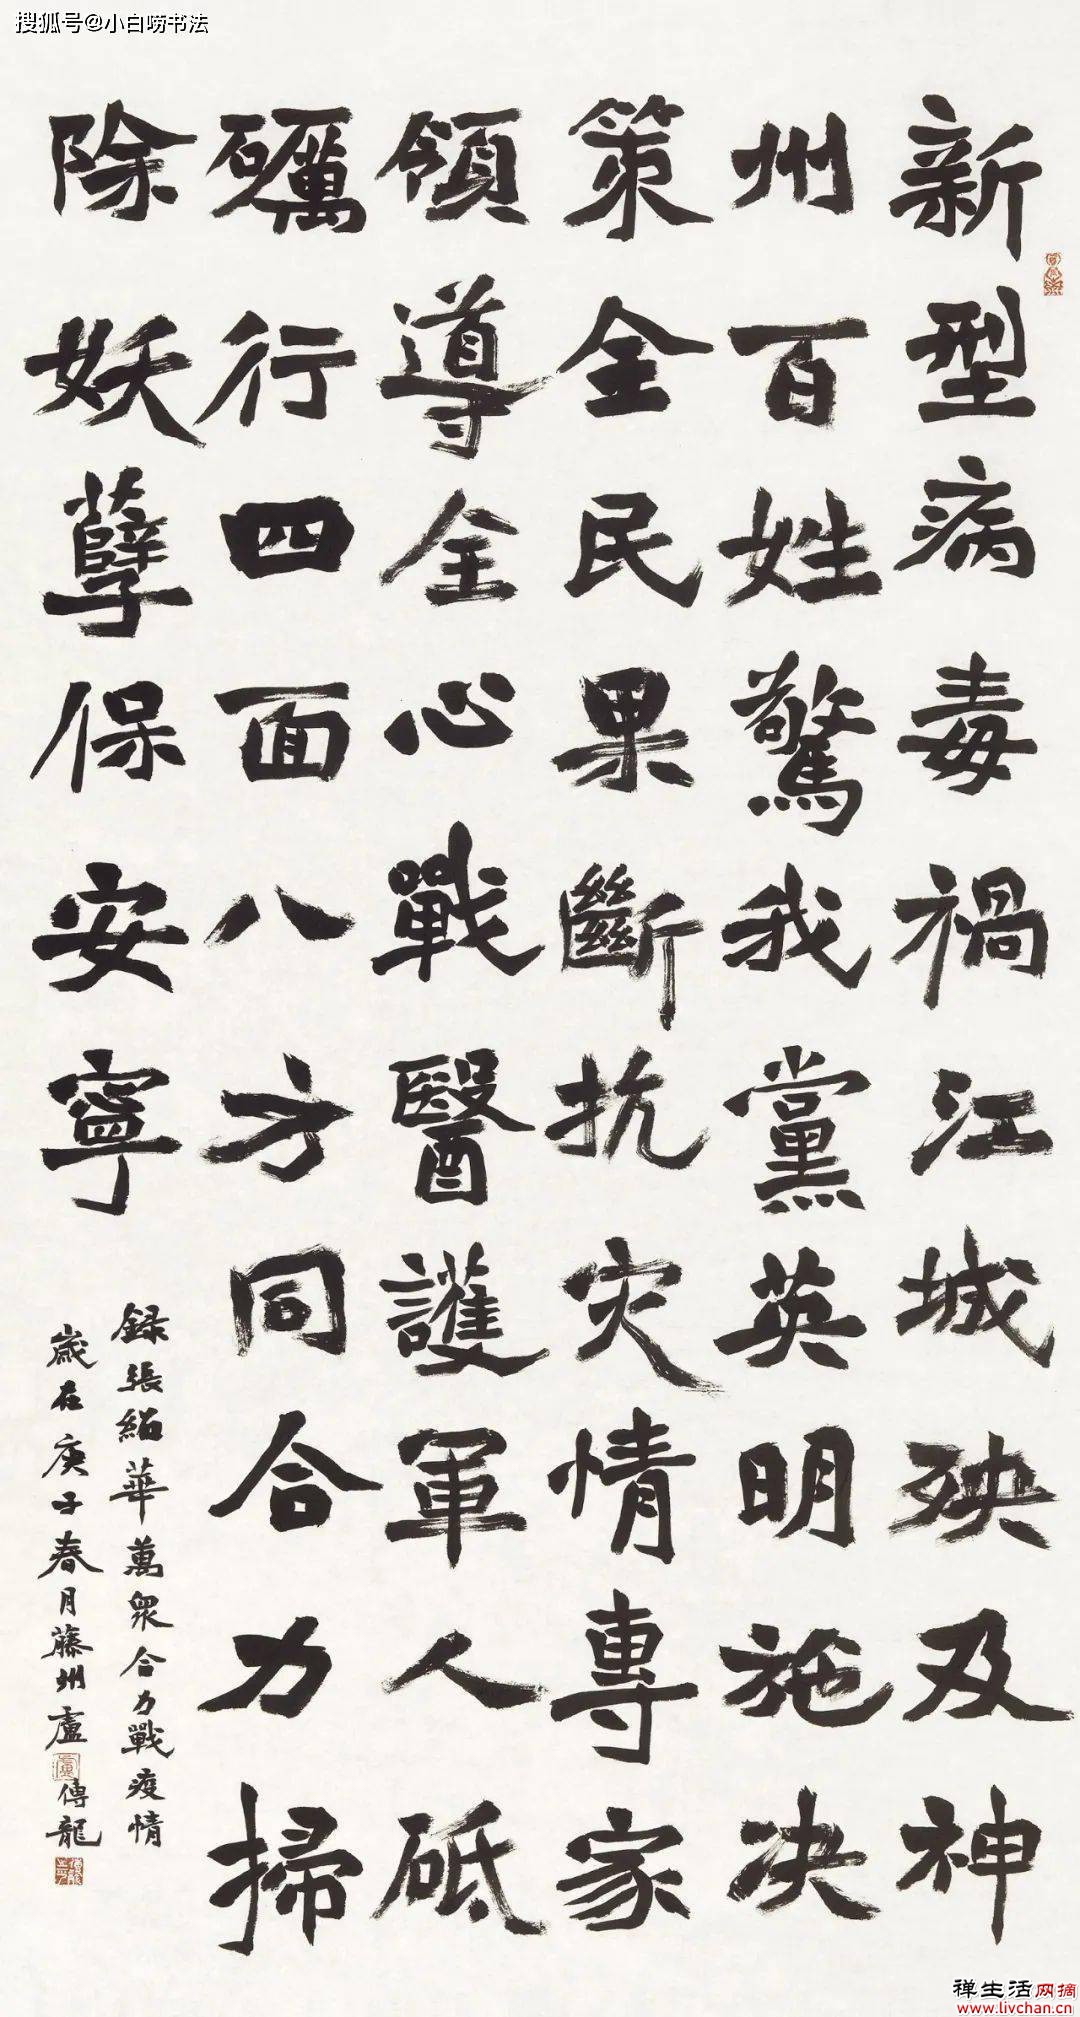 搜狐号@小白唠书法
新型病毒禍江城殃及神
州百姓驚我黨英明施决
策全民果斷抗灾情專家
領導全心戰醫護軍人砥
礪行四面八方同合力掃
除妖孽保安寧
録張紹華萬衆合力戰疫情
歲在庚子春月藤州盧傳龍
禅生活网摘
www.livchan.cn